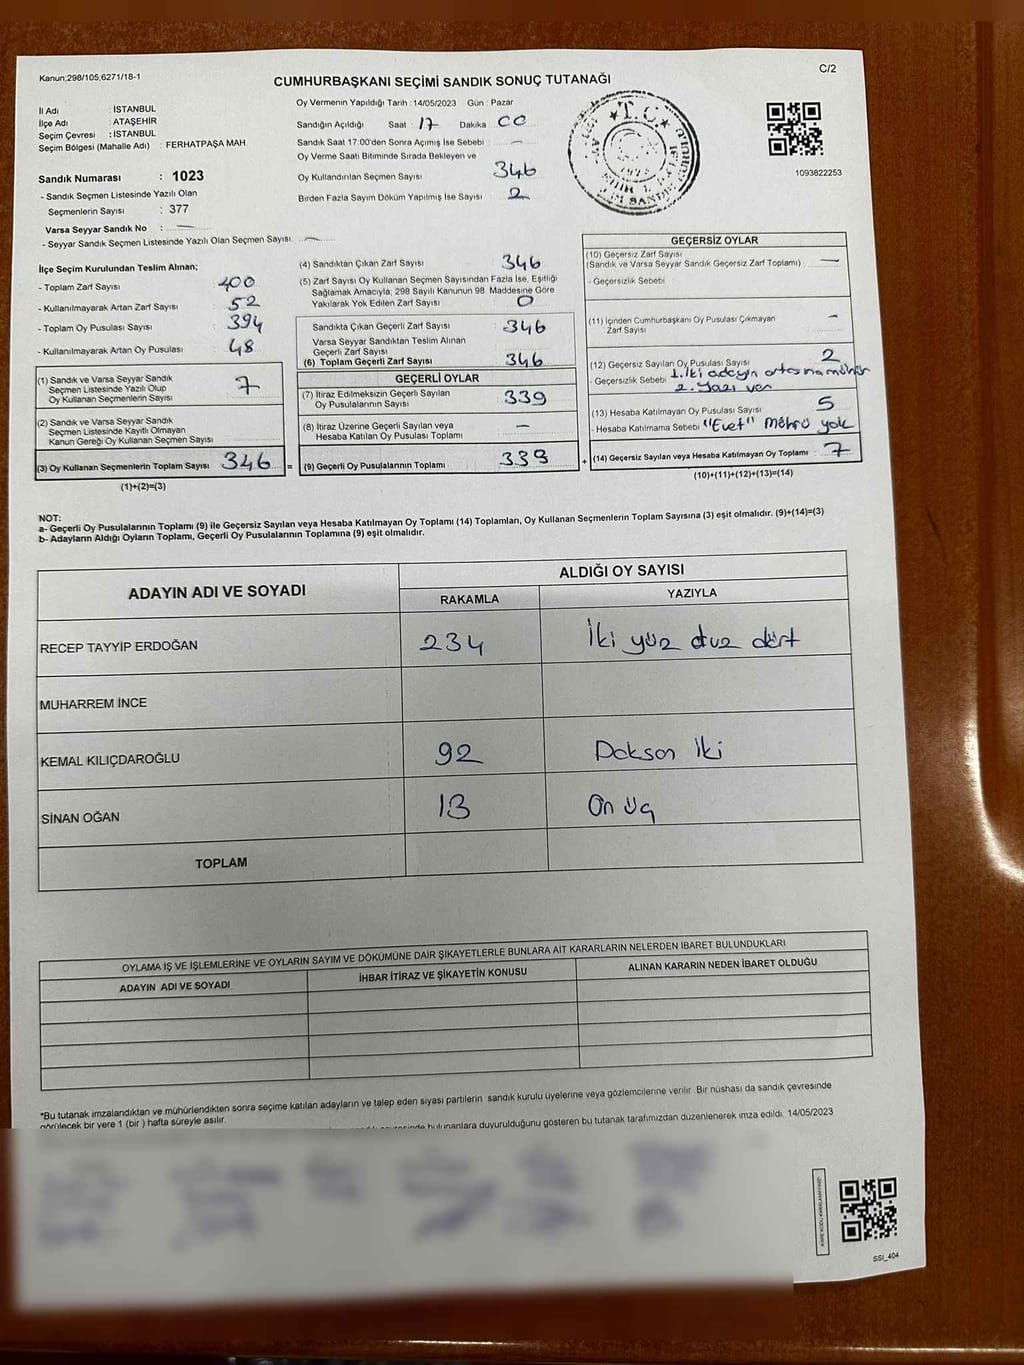 Kanun;298/105;6271/18-1
C/2
CUMHURBAŞKANI SEÇİMİ SANDIK SONUÇ TUTANAĞI
İl Adı : İSTANBUL
İlçe Adı : ATAŞEHİR
Seçim Çevresi : İSTANBUL
Seçim Bölgesi (Mahalle Adı) : FERHATPAŞA MAH.
Sandık Numarası : 1023
- Sandık Seçmen Listesinde Yazılı Olan
Seçmenlerin Sayısı : 377
Varsa Seyyar Sandık No : —
- Seyyar Sandık Seçmen Listesinde Yazılı Olan Seçmen Sayısı: —
Oy Vermenin Yapıldığı Tarih : 14/05/2023 Gün : Pazar
Sandığın Açıldığı Saat : 17 Dakika : 00
Sandık Saat 17:00'den Sonra Açımış İse Sebebi : —
Oy Verme Saati Bitiminde Sırada Bekleyen ve
Oy Kullandırılan Seçmen Sayısı 346
Birden Fazla Sayım Döküm Yapılmış İse Sayısı : 2
T.C.
1093822253
İlçe Seçim Kurulundan Teslim Alınan;
- Toplam Zarf Sayısı : 400
- Kullanılmayarak Artan Zarf Sayısı : 52
- Toplam Oy Pusulası Sayısı : 394
- Kullanılmayarak Artan Oy Pusulası : 48
(1) Sandık ve Varsa Seyyar Sandık
Seçmen Listesinde Yazılı Olup
Oy Kullanan Seçmenlerin Sayısı : 7
(2) Sandık ve Varsa Seyyar Sandık
Seçmen Listesinde Kayıtlı Olmayan
Kanun Gereği Oy Kullanan Seçmen Sayısı :
(3) Oy Kullanan Seçmenlerin Toplam Sayısı : 346
(1)+(2)=(3)
(4) Sandıktan Çıkan Zarf Sayısı : 346
(5) Zarf Sayısı Oy Kullanan Seçmen Sayısından Fazla İse, Eşitliği
Sağlamak Amacıyla; 298 Sayılı Kanunun 98. Maddesine Göre
Yakılarak Yok Edilen Zarf Sayısı : 0
Sandıkta Çıkan Geçerli Zarf Sayısı : 346
Varsa Seyyar Sandıktan Teslim Alınan
Geçerli Zarf Sayısı
(6) Toplam Geçerli Zarf Sayısı : 346
GEÇERLİ OYLAR
(7) İtiraz Edilmeksizin Geçerli Sayılan
Oy Pusulalarının Sayısı : 339
(8) İtiraz Üzerine Geçerli Sayılan veya
Hesaba Katılan Oy Pusulası Toplamı : —
= (9) Geçerli Oy Pusulalarının Toplamı : 339
GEÇERSİZ OYLAR
(10) Geçersiz Zarf Sayısı
(Sandık ve Varsa Seyyar Sandık Geçersiz Zarf Toplamı) : —
- Geçersizlik Sebebi :
(11) İçinden Cumhurbaşkanı Oy Pusulası Çıkmayan
Zarf Sayısı : —
(12) Geçersiz Sayılan Oy Pusulası Sayısı : 2
- Geçersizlik Sebebi : 1. İki adayın ortasına mühür
2. Yazı var
(13) Hesaba Katılmayan Oy Pusulası Sayısı : 5
- Hesaba Katılmama Sebebi : "Evet" Mührü yok
+ (14) Geçersiz Sayılan veya Hesaba Katılmayan Oy Toplamı : 7
(10)+(11)+(12)+(13)=(14)
NOT:
a- Geçerli Oy Pusulalarının Toplamı (9) ile Geçersiz Sayılan veya Hesaba Katılmayan Oy Toplamı (14) Toplamları, Oy Kullanan Seçmenlerin Toplam Sayısına (3) eşit olmalıdır. (9)+(14)=(3)
b- Adayların Aldığı Oyların Toplamı, Geçerli Oy Pusulalarının Toplamına (9) eşit olmalıdır.
ADAYIN ADI VE SOYADI
ALDIĞI OY SAYISI
RAKAMLA YAZIYLA
RECEP TAYYİP ERDOĞAN 234 İki yüz otuz dört
MUHARREM İNCE
KEMAL KILIÇDAROĞLU 92 Doksan İki
SİNAN OĞAN 13 On üç
TOPLAM
OYLAMA İŞ VE İŞLEMLERİNE VE OYLARIN SAYIM VE DÖKÜMÜNE DAİR ŞİKAYETLERLE BUNLARA AİT KARARLARIN NELERDEN İBARET BULUNDUKLARI
ADAYIN ADI VE SOYADI İHBAR İTİRAZ VE ŞİKAYETİN KONUSU ALINAN KARARIN NEDEN İBARET OLDUĞU
*Bu tutanak imzalandıktan ve mühürlendikten sonra seçime katılan adayların ve talep eden siyasi partilerin sandık kurulu üyelerine veya gözlemcilerine verilir. Bir nüshası da sandık çevresinde
görülecek bir yere 1 (bir ) hafta süreyle asılır.
bulunanlara duyurulduğunu gösteren bu tutanak tarafımızdan düzenlenerek imza edildi. 14/05/2023
SSI_404